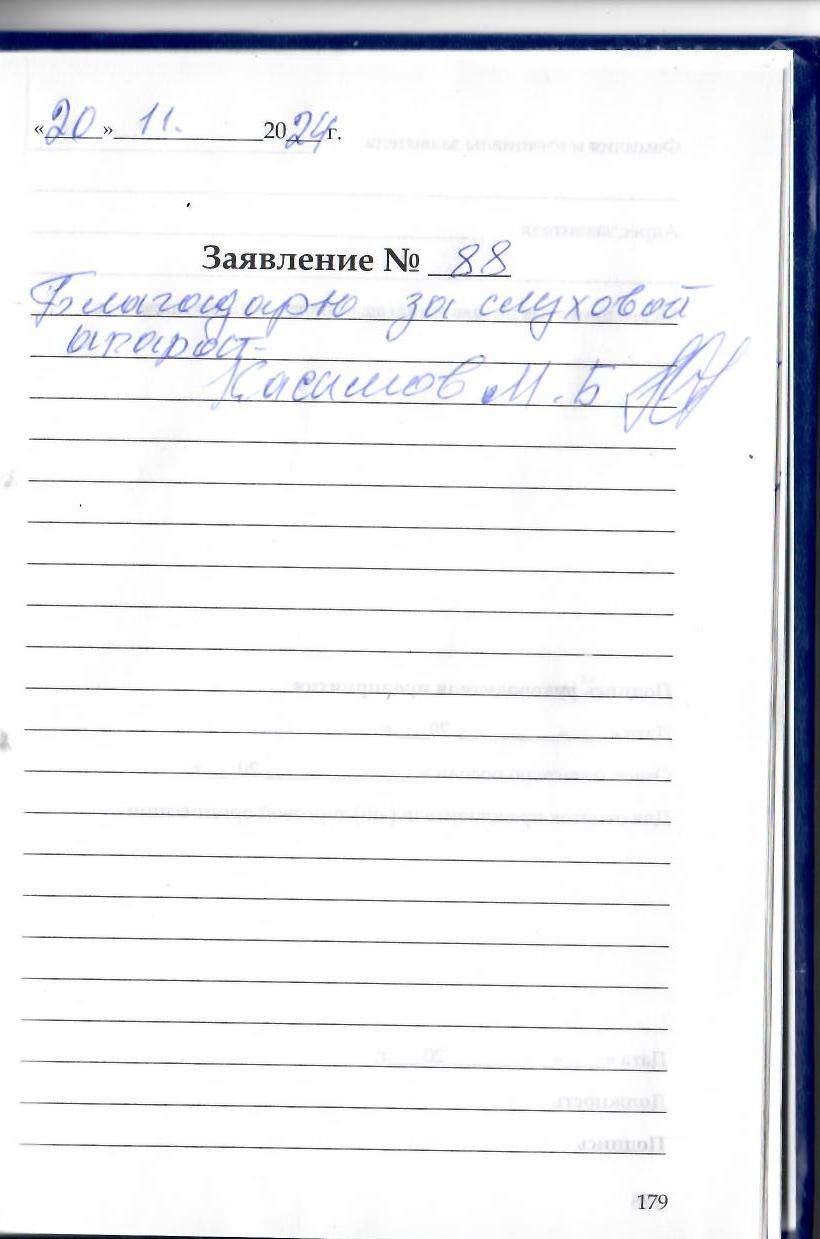 «20» 11. 2024г.
Заявление № 88
Благодарю за слуховой
апарат.
Касимов М.Б
179